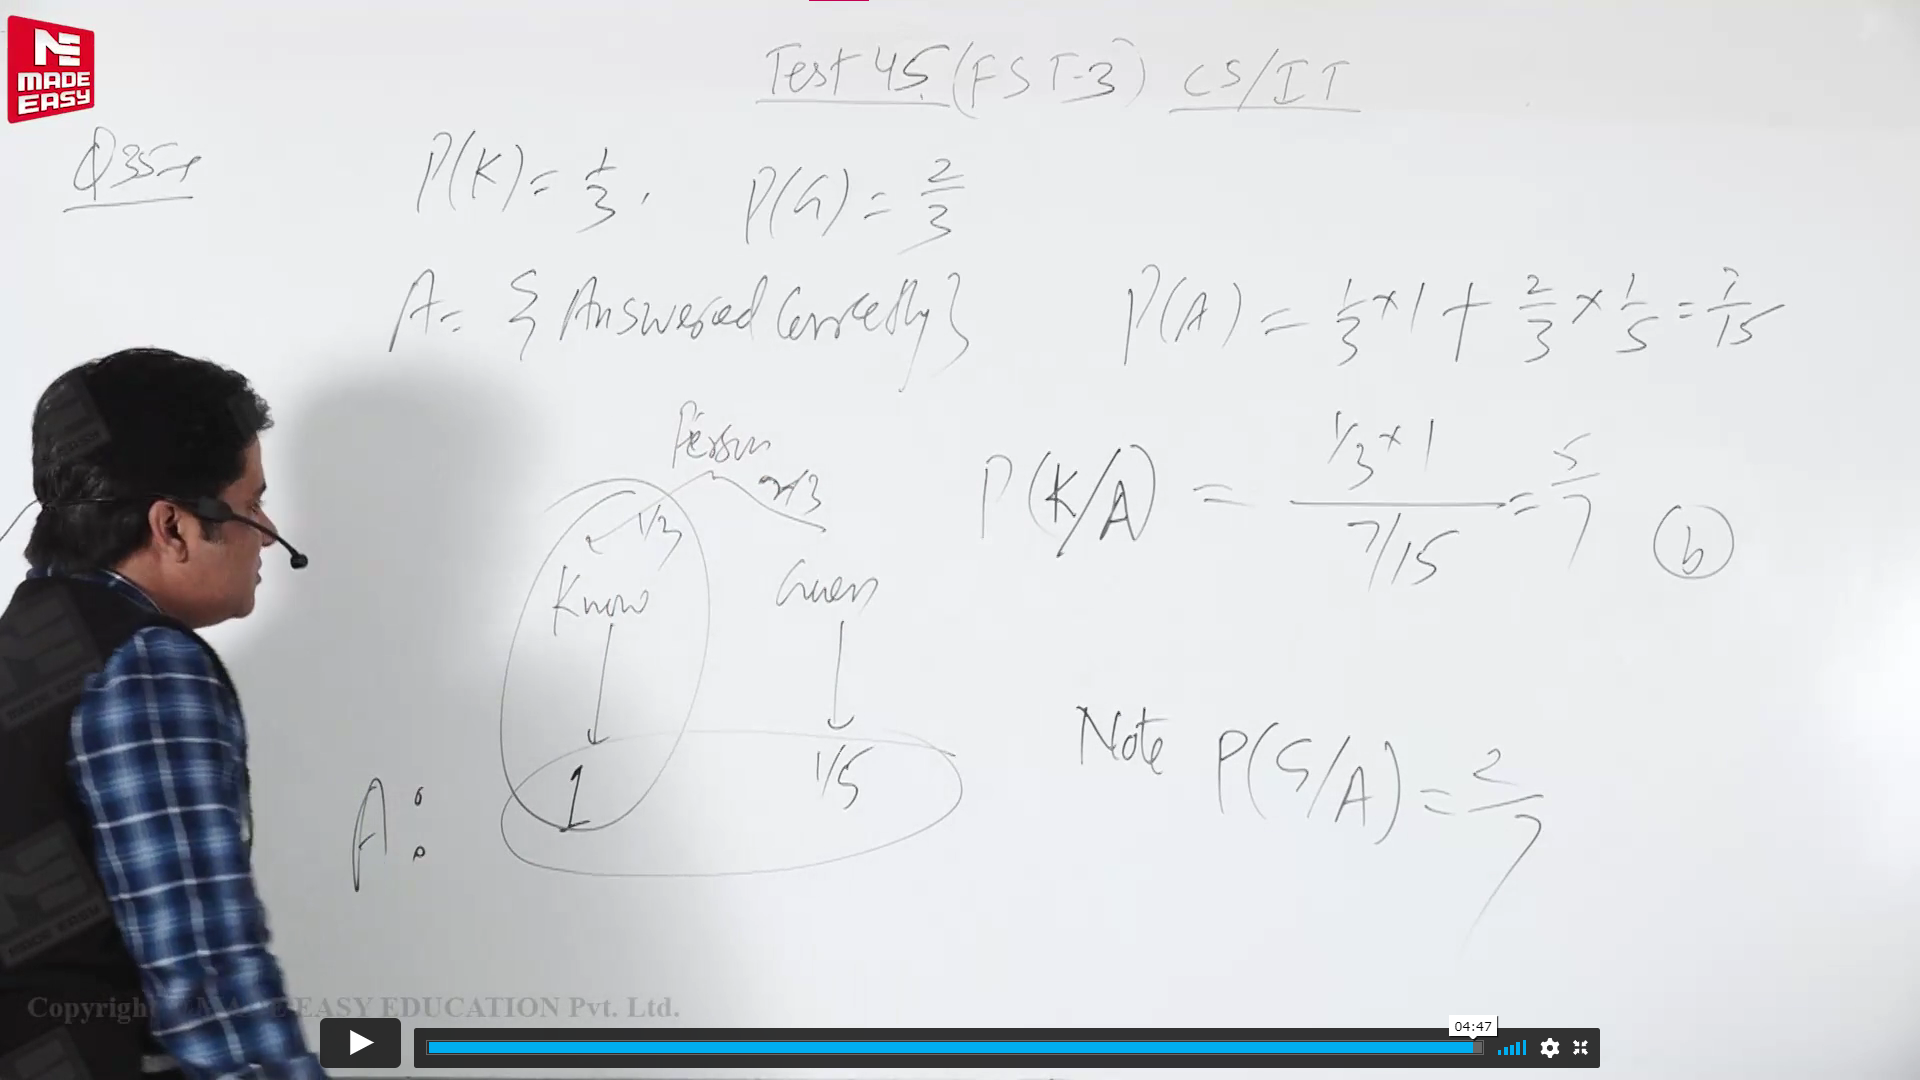 MADE EASY
Test 45 (FST-3) CS/IT
Q35→
P(K) = 1/3, P(G) = 2/3
A = { Answered Correctly}
P(A) = 1/3 × 1 + 2/3 × 1/5 = 7/15
Person
1/3 2/3
Know Guess
A: 1 1/5
P(K/A) = 1/3 × 1 / 7/15 = 5/7 (b)
Note P(G/A) = 2/7
Copyright MADE EASY EDUCATION Pvt. Ltd.
04:47